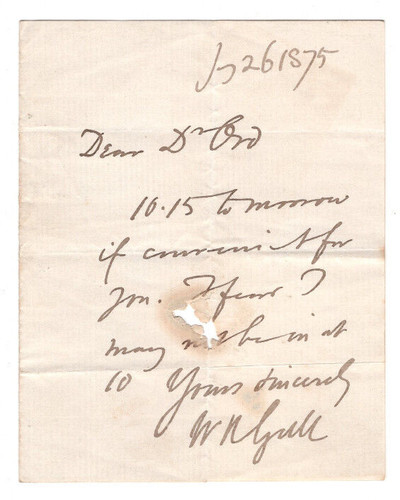 Jy 26 1875
Dear Dr Ord
10.15 tomorrow
if convenient for
you. I fear I
may not be in at
10 Yours sincerely
W W Gull